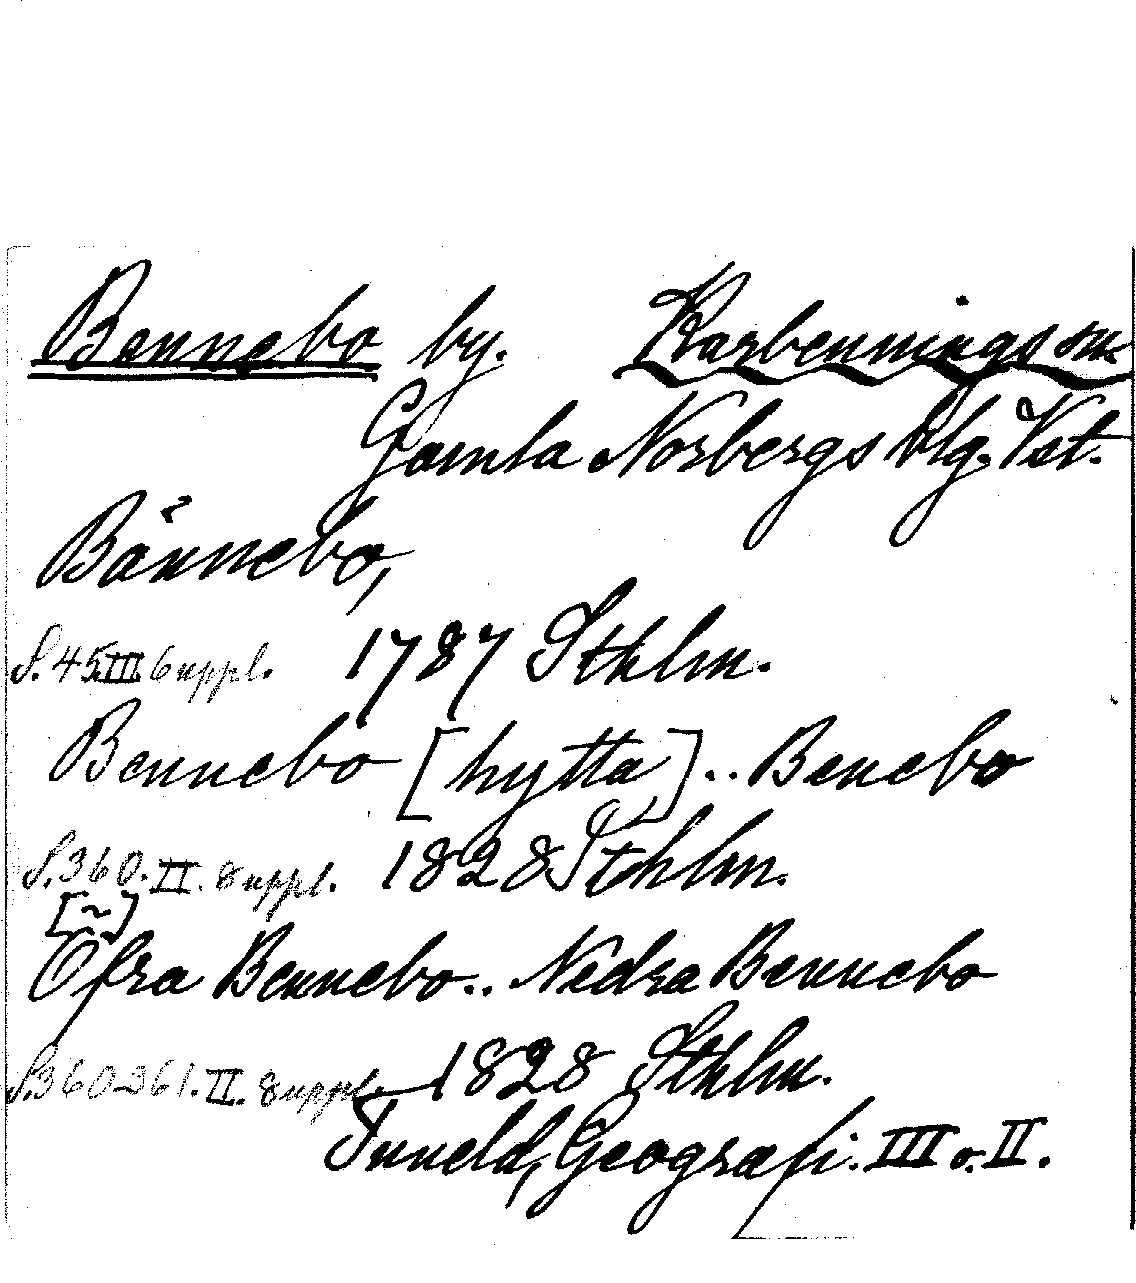 Bennebo by. Karbennings sn
Gamla Norbergs blg. Vst.
Bännebo,
S. 45 III Suppl. 1787 Sthlm.
Bennebo [hytta] .. Benebo
S. 360. II. Suppl. 1828 Sthlm.
[~]
Öfra Bennebo .. Nedra Bennebo
S. 360-361. II. Suppl. 1828 Sthlm.
Tuneld, Geografi. III o. II.